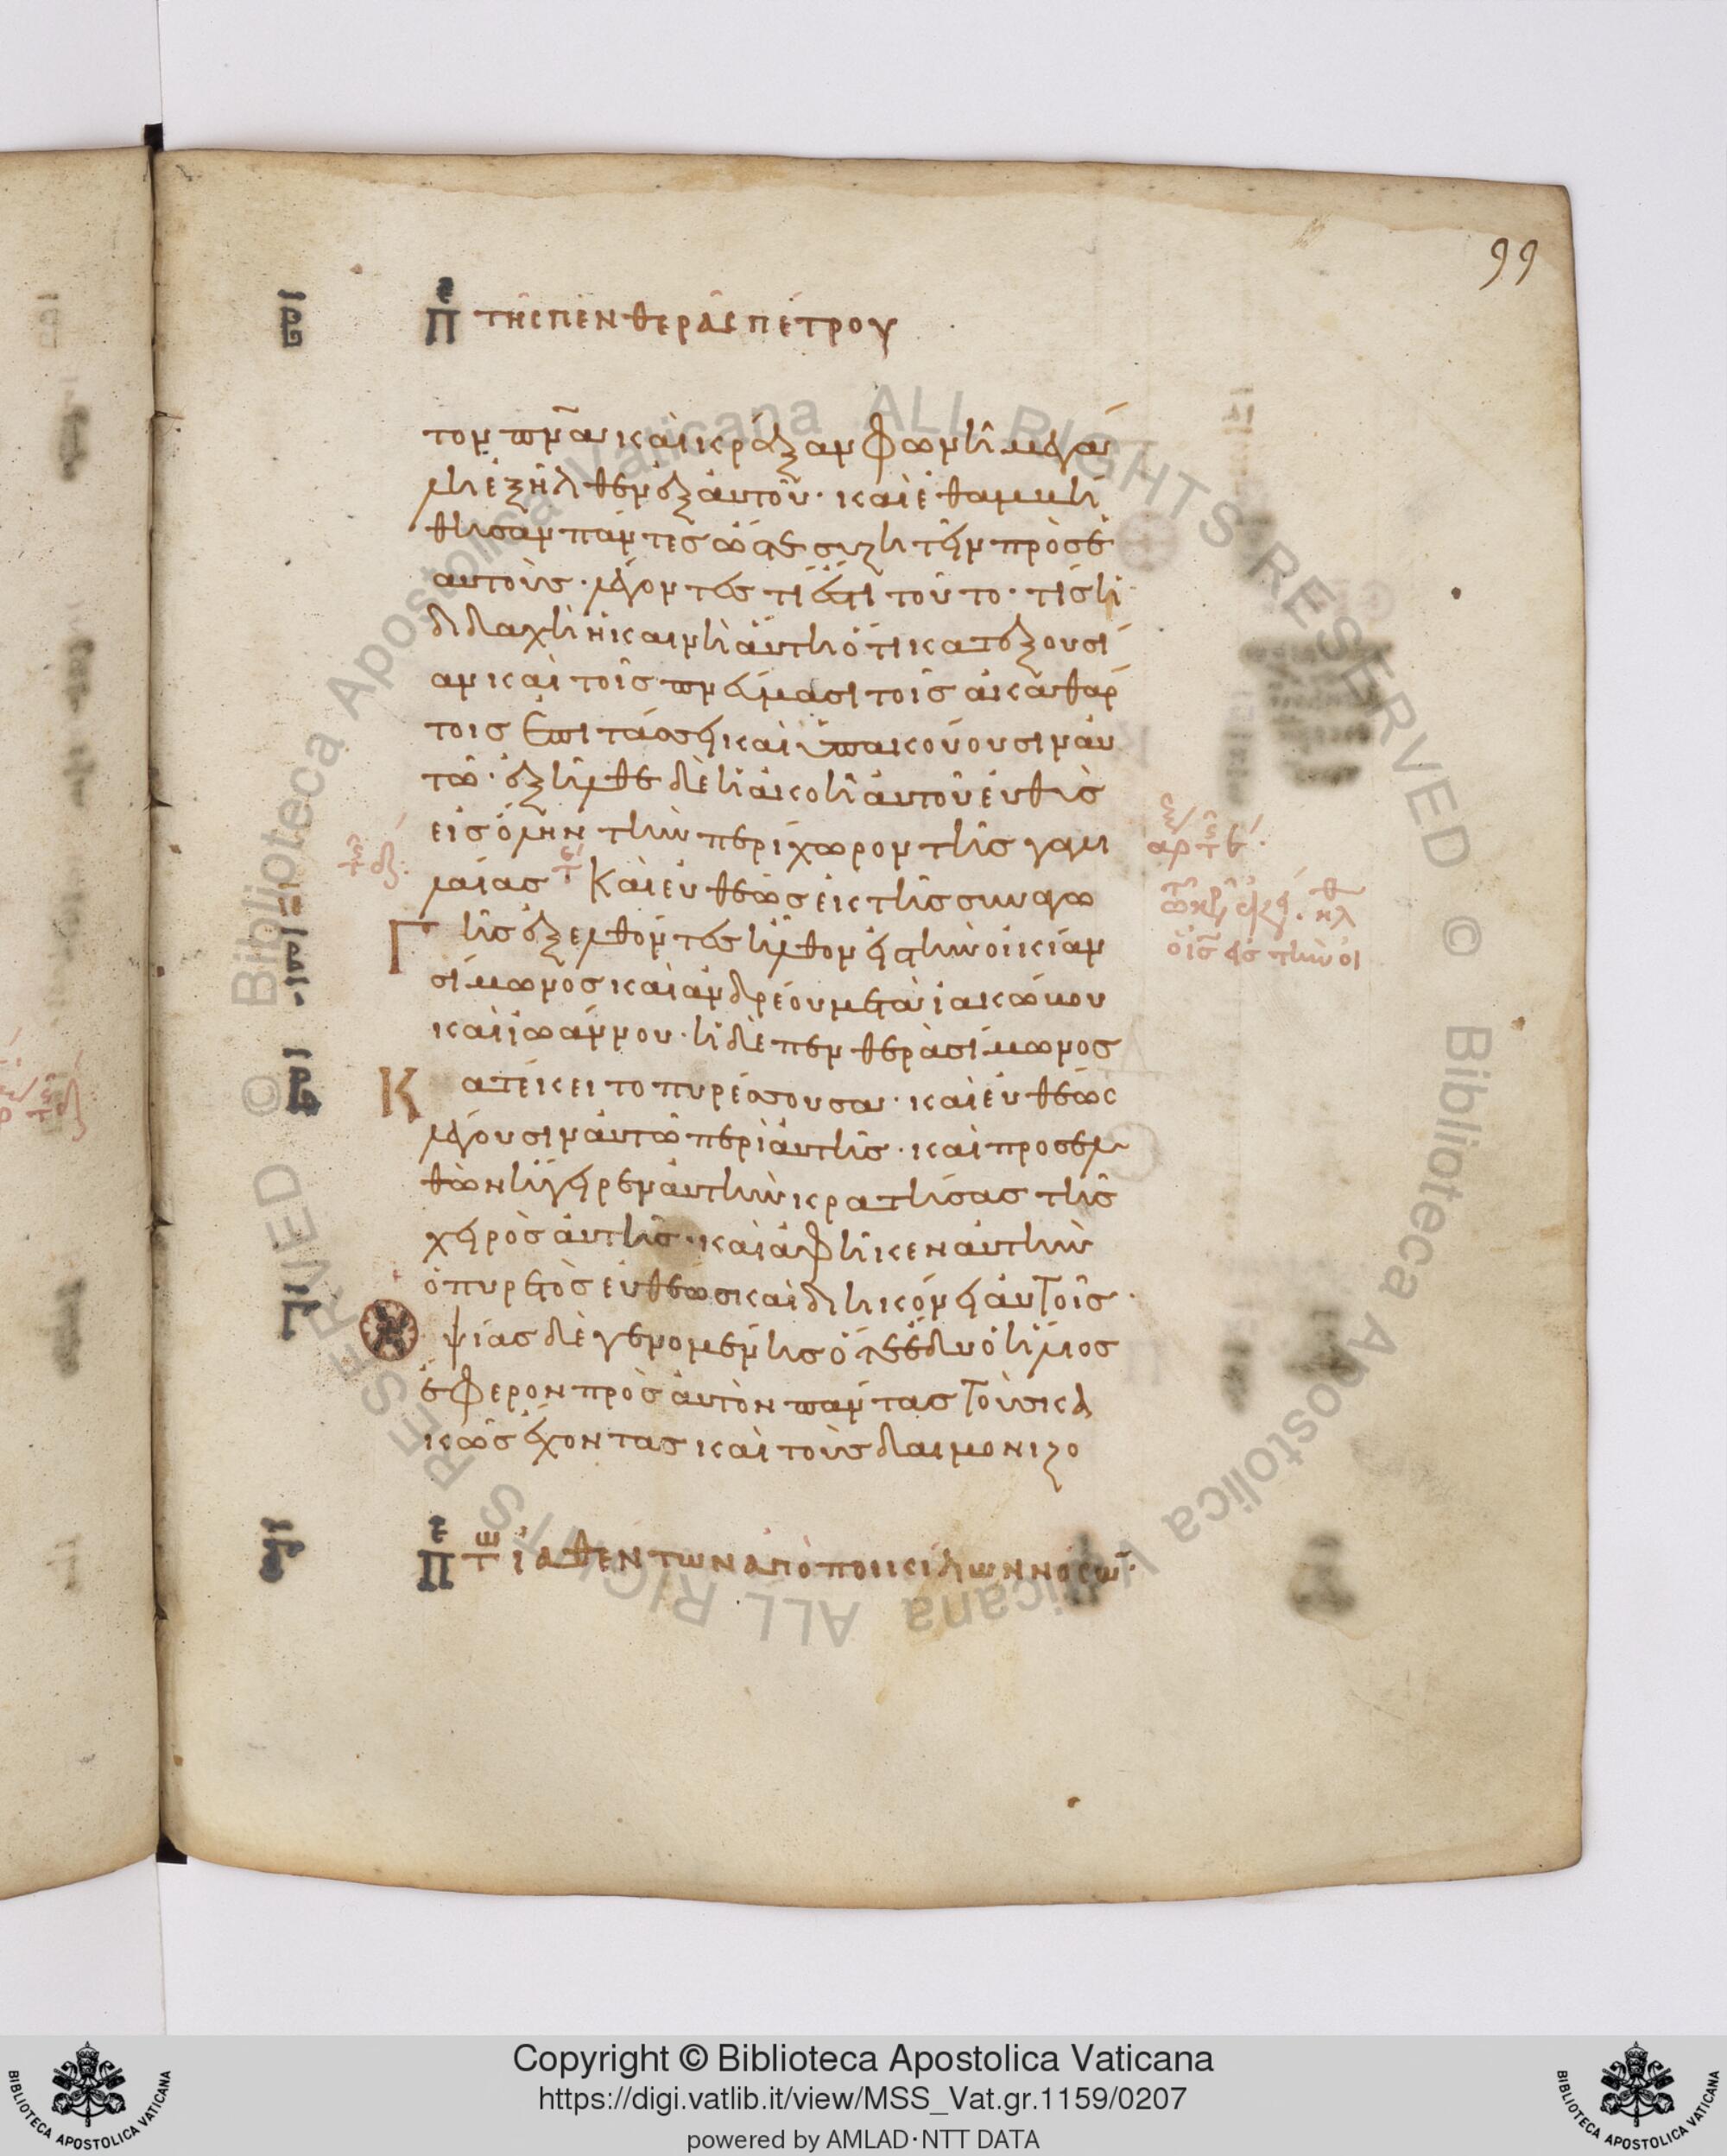 99
πε τῆς πενθερᾶς πέτρου
τον πνα καὶ κράξαν φωνῆ μεγά
λη ἐξῆλθεν ἐξ αυτοῦ· καὶ ἐθαμβή
θησαν πάντες ὥστε συζητεῖν πρὸς ἑ
αυτοὺς· λέγοντες τί ἐστι τοῦτο· τίς ἡ
διδαχὴ ἡ καινὴ αὕτη ὅτι κατ εξουσί
αν καὶ τοῖς πνεύμασι τοῖς ἀκαθάρ
τοις ἐπιτάσσει καὶ ὑπακούουσιν αυ
τῶ· ἐξῆλθε δὲ ἡ ἀκοὴ αυτοῦ ἐυθὺς
εἰς ὅλην τὴν περίχωρον τῆς γαλι
λαίας Καὶ ἐυθέως ἐκ τῆς συναγω
Γ ῆς ἐξελθόντες ἦλθον εἰς τὴν οἰκίαν
σίμωνος καὶ ανδρέου μετὰ ἰακώβου
καὶ ἰωάννου· ἡ δὲ πενθερὰ σίμωνος
Κ ατέκειτο πυρέσσουσα· καὶ ἐυθέως
λέγουσιν αυτῶ περὶ αυτῆς· καὶ προσελ
θὼν ἤγειρεν αυτὴν κρατήσας τῆς
χειρὸς αυτῆς· καὶ ἀφῆκεν αυτὴν
ὁ πυρετὸς ἐυθέως καὶ διηκόνει αυτοῖς·
Ὀψίας δὲ γενομένης ὅτε ἔδυ ὁ ἥλιος
ἔφερον πρὸς αυτὸν πάντας τοὺς κα
κῶς ἔχοντας καὶ τοὺς δαιμονιζο
πε τω ἰαθέντων ἀπὸ ποικίλων νόσω·
Copyright © Biblioteca Apostolica Vaticana
https://digi.vatlib.it/view/MSS_Vat.gr.1159/0207
powered by AMLAD·NTT DATA
BIBLIOTECA APOSTOLICA VATICANA
BIBLIOTECA APOSTOLICA VATICANA